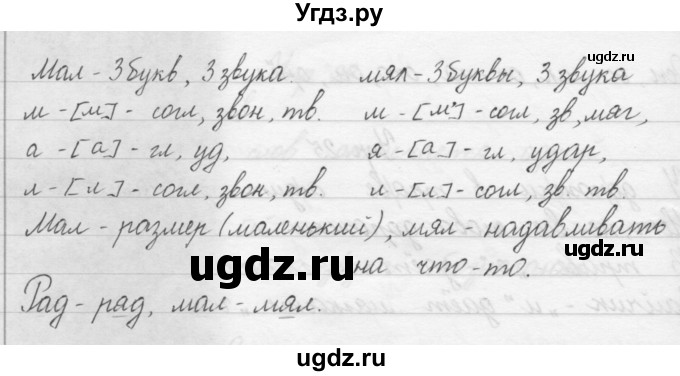 Угдз.ру
Мал - 3 букв, 3 звука.
м - [м] - согл, звон, тв.
а - [а] - гл, уд,
л - [л] - согл, звон, тв.
мял - 3 буквы, 3 звука
м - [м'] - согл, зв, мяг,
я - [а] - гл, удар,
л - [л] - согл, зв. тв.
Мал - размер (маленький), мял - надавливать
на что-то.
Рад - ряд, мал - мял.
ugdz.ru
ugdz.ru
ugdz.ru
ugdz.ru
ugdz.ru